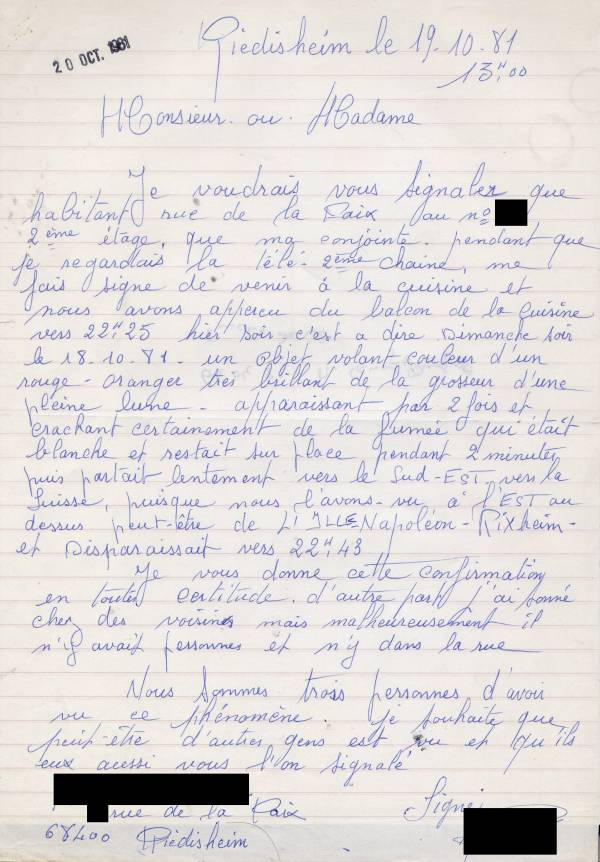 20 OCT. 1981
Riedisheim le 19.10.81
13H,00
Monsieur. ou. Madame
Je voudrais vous signaler que
habitant rue de la Paix au nº
2ème étage, que ma conjointe. pendant que
je regardais la télé. 2ème chaine, me
fais signe de venir à la cuisine et
nous avons apperçu du balcon de la cuisine
vers 22H,25 hier soir c'est a dire. Dimanche soir
le 18.10.81. un objet volant couleur d'un
rouge - oranger très brillant de la grosseur d'une
pleine lune - apparaissant par 2 fois et
crachant certainement de la fumée qui était
blanche et restait sur place pendant 2 minutes
puis partait lentement vers le Sud-EST vers la
Suisse, puisque nous l'avons-vu à l'EST au
dessus peut-être de L'ILLE-Napoléon-Rixheim-
et Disparaissait vers 22H,43
Je vous donne cette confirmation
en toute certitude. d'autre part j'ai sonné
chez des voisines mais malheureusement il
n'y avait personnes et n'y dans la rue
Nous sommes trois personnes d'avoir
vu ce phénomène. je souhaite que
peut-être d'autres gens est vu et qu'ils
eux aussi vous l'on signalé
rue de la Paix
Signé:
68400 Riedisheim